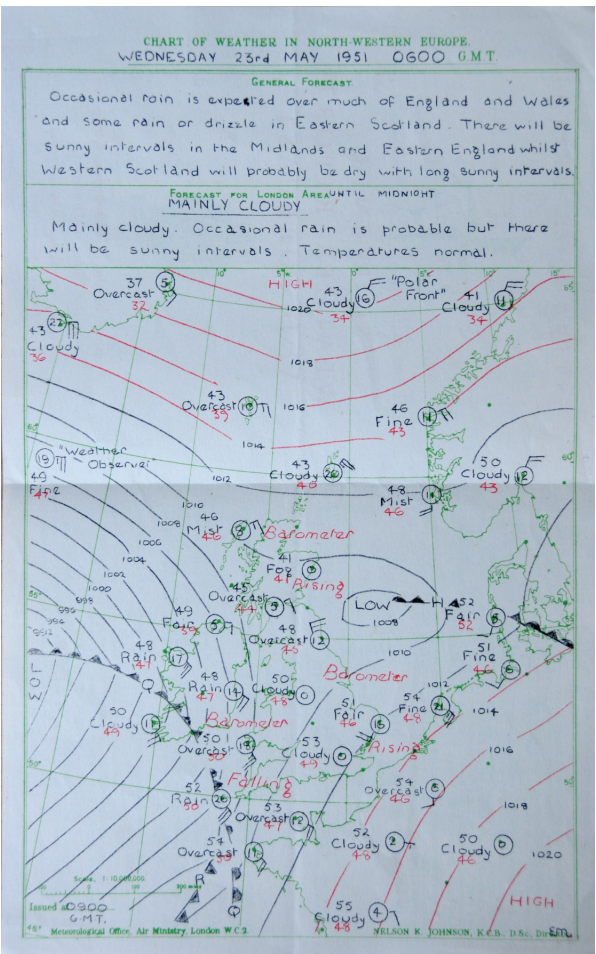 CHART OF WEATHER IN NORTH-WESTERN EUROPE.
WEDNESDAY 23rd MAY 1951 0600 G.M.T.
GENERAL FORECAST.
Occasional rain is expected over much of England and Wales
and some rain or drizzle in Eastern Scotland. There will be
sunny intervals in the Midlands and Eastern England whilst
Western Scotland will probably be dry with long sunny intervals.
FORECAST FOR LONDON AREA UNTIL MIDNIGHT
MAINLY CLOUDY
Mainly cloudy. Occasional rain is probable but there
will be sunny intervals. Temperatures normal.
10° 5° 0° 5° 10° 15°
37 Overcast 32 5
HIGH
1020
43 Cloudy 34 16
"Polar Front"
41 Cloudy 34 11
43 Cloudy 36 22
1018
43 Overcast 39
1016
46 Fine 43 11
1014
"Weather Observer"
49 Fine 47 19
1012
43 Cloudy 40 20
50 Cloudy 43 12
48 Mist 46
1010
1008
46 Mist 46 8
Barometer
1006
1004
41 Fog 41
Rising
1002
1000
998
996
994
992
45 Overcast 44
LOW
H
1008
52 Fair 52
49 Fair 39 5
48 Overcast 45 12
1010
48 Rain 47 17
51 Fine 46 6
LOW
Q
48 Rain 47 14
50 Cloudy 48 0
Barometer
1012
54 Fine 48 21
1014
50 Cloudy 49
Barometer
51 Fair 46 16
50 Overcast 50 18
53 Cloudy 49 0
Rising
1016
Falling
52 Rain 50
54 Overcast 46
1018
53 Overcast 47 12
54 Overcast
52 Cloudy 48 2
50 Cloudy 46 0
1020
Scale, 1:10,000,000.
300 miles
R
Q
HIGH
Issued at 0900
G.M.T.
55 Cloudy 48 4
45° Meteorological Office, Air Ministry, London W.C.2.
NELSON K. JOHNSON, K.C.B., D.Sc.